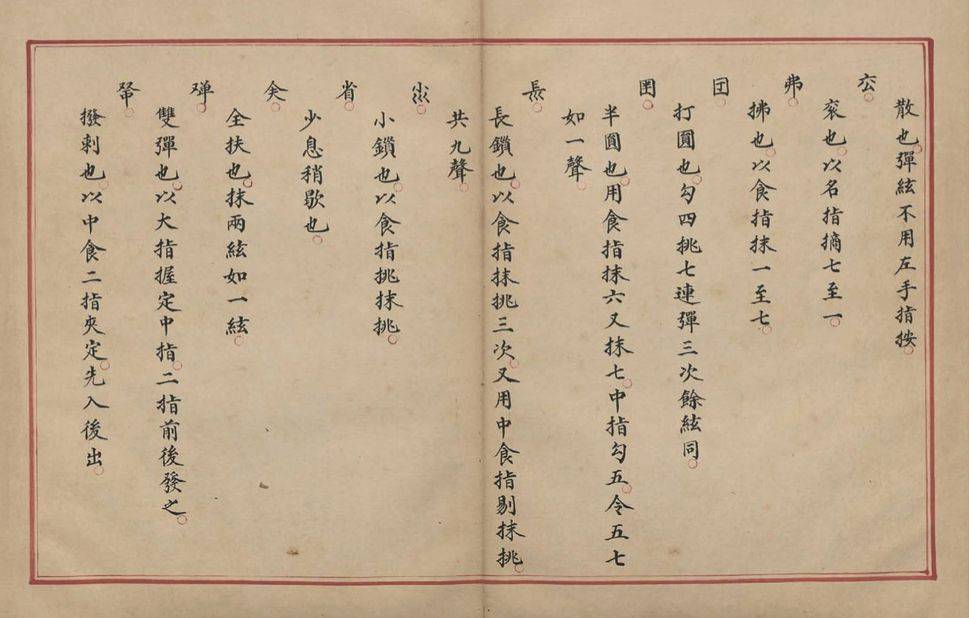 散也。彈絃不用左手指按。
厺。
衮也。以名指摘七至一。
弗。
拂也。以食指抹一至七。
打圓也。勾四挑七連彈三次餘絃同。
半圓也。用食指抹六又抹七。中指勾五。令五七
如一聲。
長鎖也。以食指抹挑三次。又用中食指剔抹挑。
共九聲。
小鎖也。以食指挑抹挑。
省。
少息稍歇也。
全扶也。抹兩絃如一絃。
雙彈也。以大指握定中指。二指前後發之。
撥剌也。以中食二指夾定。先入後出。